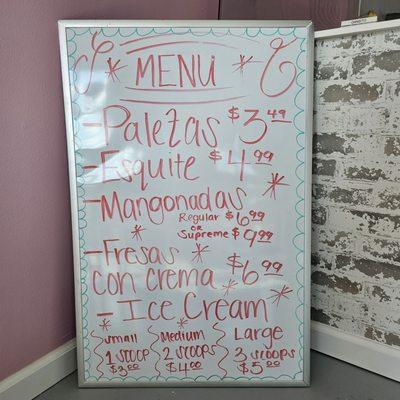 MENU
-Paletas $3.49
-Esquite $4.99
-Mangonadas
Regular $6.99
OR
Supreme $9.99
-Fresas
con crema $6.99
- Ice Cream
Small Medium Large
1 scoop 2 scoops 3 scoops
$3.00 $4.00 $5.00